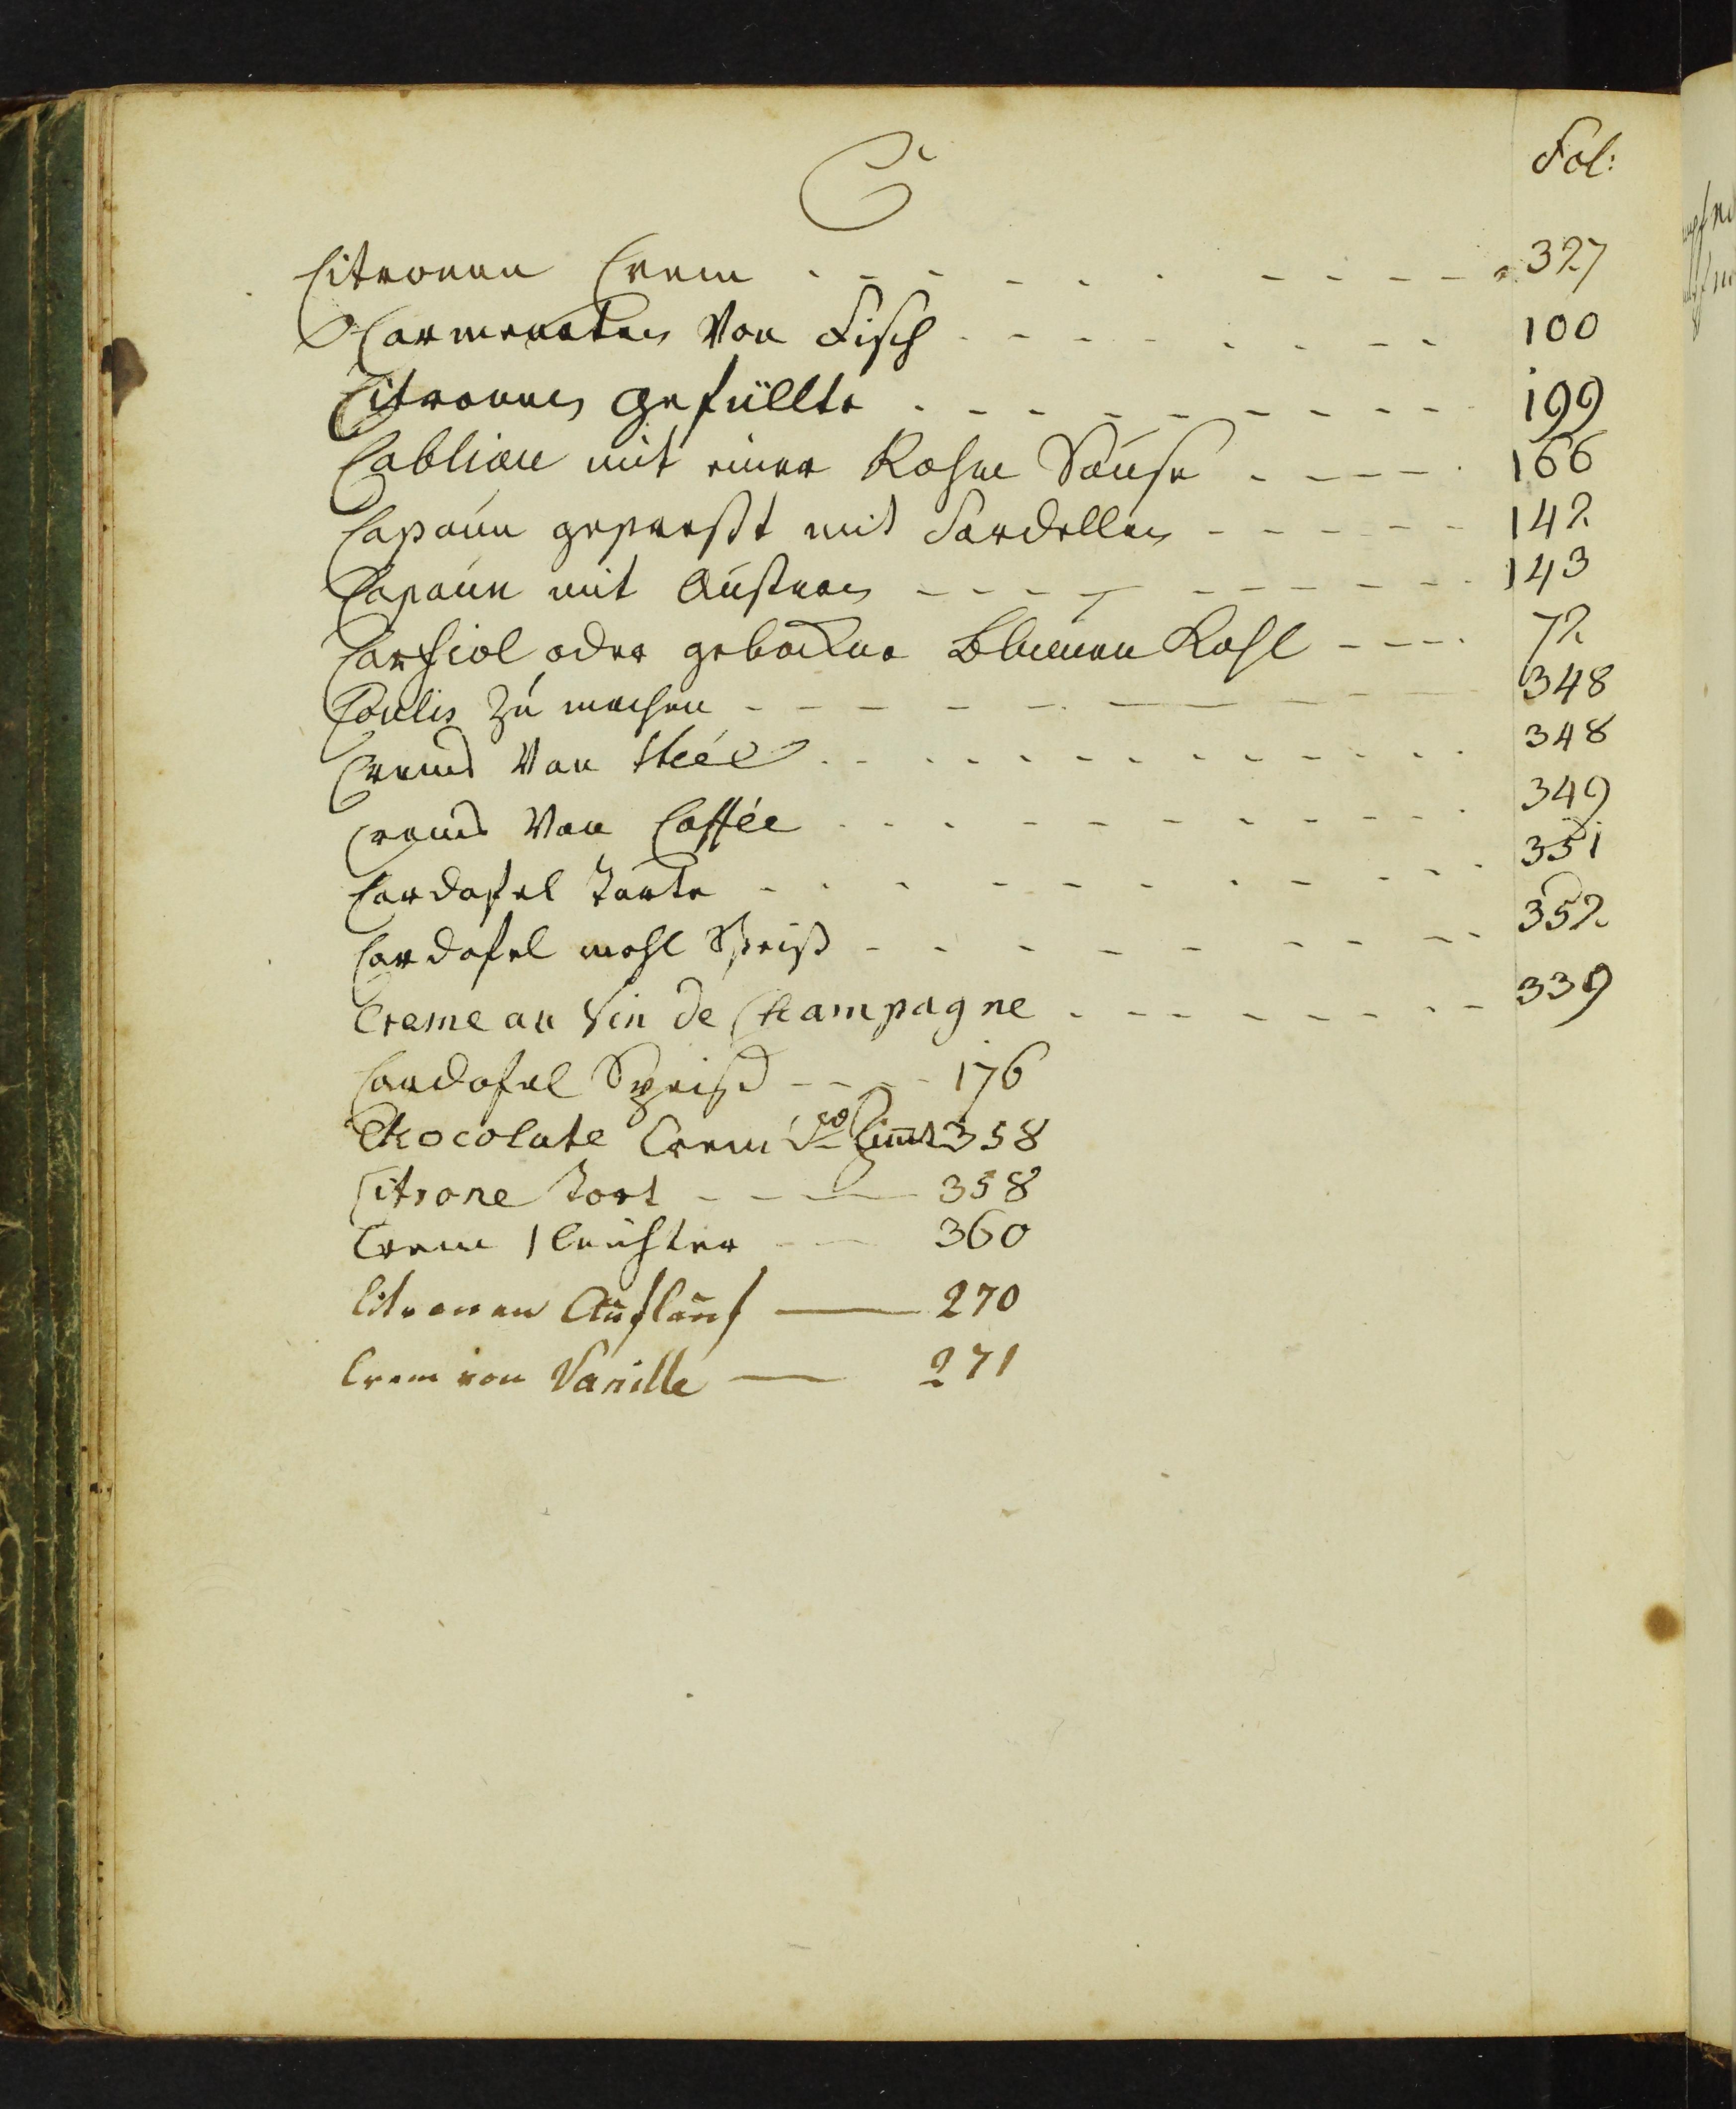 C
Fol:
Citronen Crem - - - - - - - - - - 327
Carmenaten Von Fisch - - - - - - - - 100
Citronen gefüllte - - - - - - - - - 199
Cabliau mit einer Rahm Sause - - - - 166
Capaun gepreßt mit Sardellen - - - - - 142
Capaun mit Austern - - - - - - - - - 143
Carfiol oder gebackene Blumen Kohl - - - 72
Coulis zu machen - - - - - - - - 348
Crems Von thée - - - - - - - - - - 348
Crems Von Caffée - - - - - - - - - - 349
Cardofel Tarte - - - - - - - - - - 351
Cardofel mehl Speiß - - - - - - - - 352
Creme au Vin de Champagne - - - - - - - - 339
Cardofel Speiß - - - - 176
Chocolate Crem do Zimt 358
Citrone Tort - - - 358
Crem leichter - - 360
Citronen Auflauf — 270
Crem von Vanille — 271